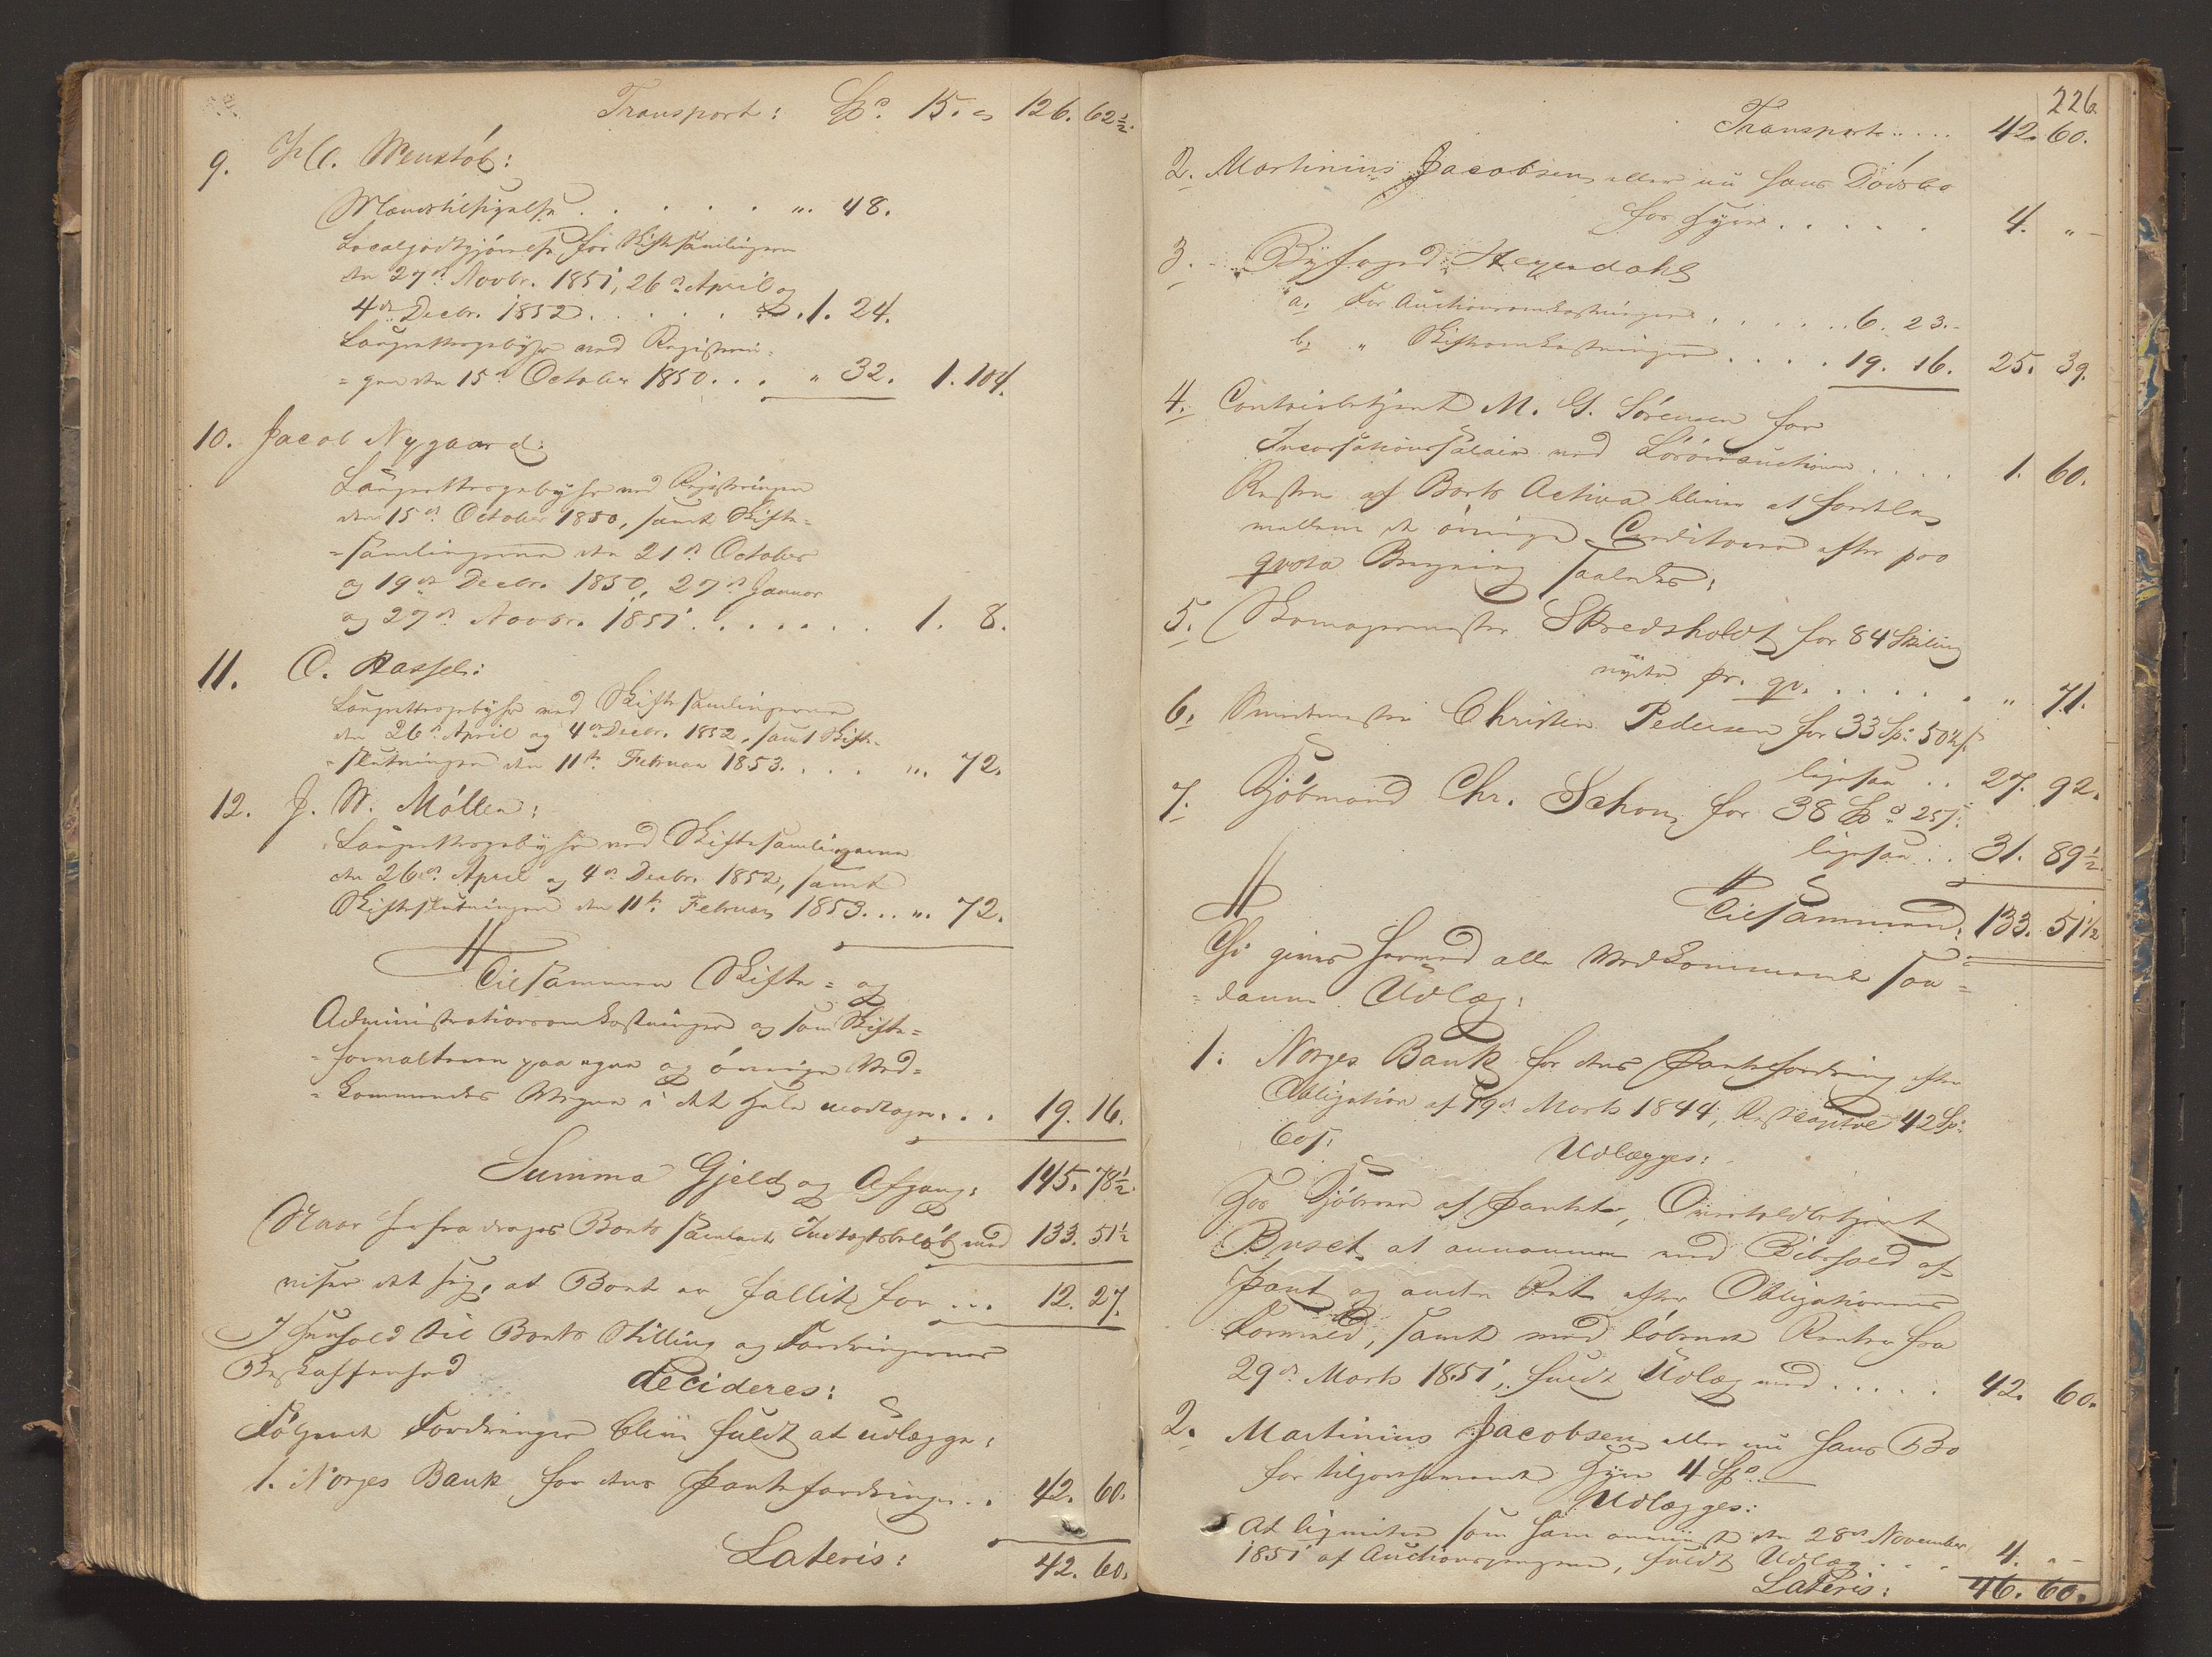 Transport: Spd. 15. " 126. 62½.
9. H. C. Wenstöb:
Mændstilsigelse . . . . . . ". 48.
Localgodtgjörelse for Skiftesamlingerne
den 27de Novbr. 1851, 26de April og
4de Decbr. 1852 . . . . . . 1. 24.
Laugrettesgebyhr ved Registerin=
=gen den 15de October 1850. . . " 32. 1. 104.
10. Jacob Nygaard:
Laugrettesgebyhr ved Registeringen
den 15de October 1850, samt Skifte=
=samlingerne den 21de October
og 19de Decbr. 1850, 27de Januar
og 27de Novbr. 1851 . . . . . . . 1. 8.
11. O. Hassel:
Laugrettesgebyhr ved Skiftesamlingerne
den 26de April og 4de Decbr. 1852, samt Skifte=
=slutningen den 11te Februar 1853. . . . ". 72.
12. J. W. Möller:
Laugrettesgebyhr ved Skiftesamlingerne
den 26de April og 4de Decbr. 1852, samt
Skifteslutningen den 11te Februar 1853. . . ". 72.
Tilsammen Skifte= og
Administrationsomkostninger og som Skifte=
=forvalteren paa egne og övrige Ved=
=kommendes Vegne i det Hele modtager. . . 19. 16.
Summa Gjeld og Afgang: 145. 78½.
Naar herfra drages Boets samlede Indtægtsbelöb med 133. 51½
viser det sig, at Boet er fallit for . . . 12. 27.
I Henhold til Boets Stilling og Fordringernes
Beskaffenhed decideres:
Fölgende Fordringer bliver fuldt at udlægge:
1. Norges Bank for dens Pantefordringer . . 42. 60.
Lateris: 42. 60.
226.
Transport . . . . . 42. 60.
2. Martinius Jacobsen eller nu hans Dödsbo
for Hyre . . . . . 4. "
3. Byfoged Heyerdahl
a. For Auctionsomkostninger . . . . . . 6. 23.
b. " Skifteomkostninger . . . . 19. 16. 25. 39.
4. Contoirbetjent M. G. Sörensen for
Incassationssalair ved Lösöreauctionen . . . . 1. 60.
Resten af Boets Activa bliver at fordele
mellem de övrige Creditorer efter pro
qvota Beregning saaledes:
5. Skomagermester Skredsholdt for 84 Skilling
nyder pr. qv. . . . . . . " 71.
6. Smedmester Christen Pedersen for 33 Sp: 50½ s.
ligesaa . . 27. 92.
7. Kjöbmand Chr. Schou for 38 Spd 25 s.
ligesaa . . . 31. 89½.
Tilsammen: 133. 51½
Thi gives hermed alle Vedkommende saa=
=danne Udlæg:
1. Norges Bank for dens Pantefordring efter
Obligation af 19de Marts 1844, Restcapital 42 Sp:
60 s. Udlægges:
Hos Kjöberen af Pantet, Overtoldbetjent
Buset at annamme med Bibehold af
Pant og anden Ret efter Obligationens
Formeld, samt med löbende Renter fra
29de Marts 1851, fuldt Udlæg med . . . . . 42. 60.
2. Martinius Jacobsen eller nu hans Bo
for tilgodehavende Hyre 4 Spd.
Udlægges:
At ligvidere som ham anviist den 28de November
1851 af Auctionspengene, fuldt Udlæg . . . 4. "
Lateris: 46. 60.